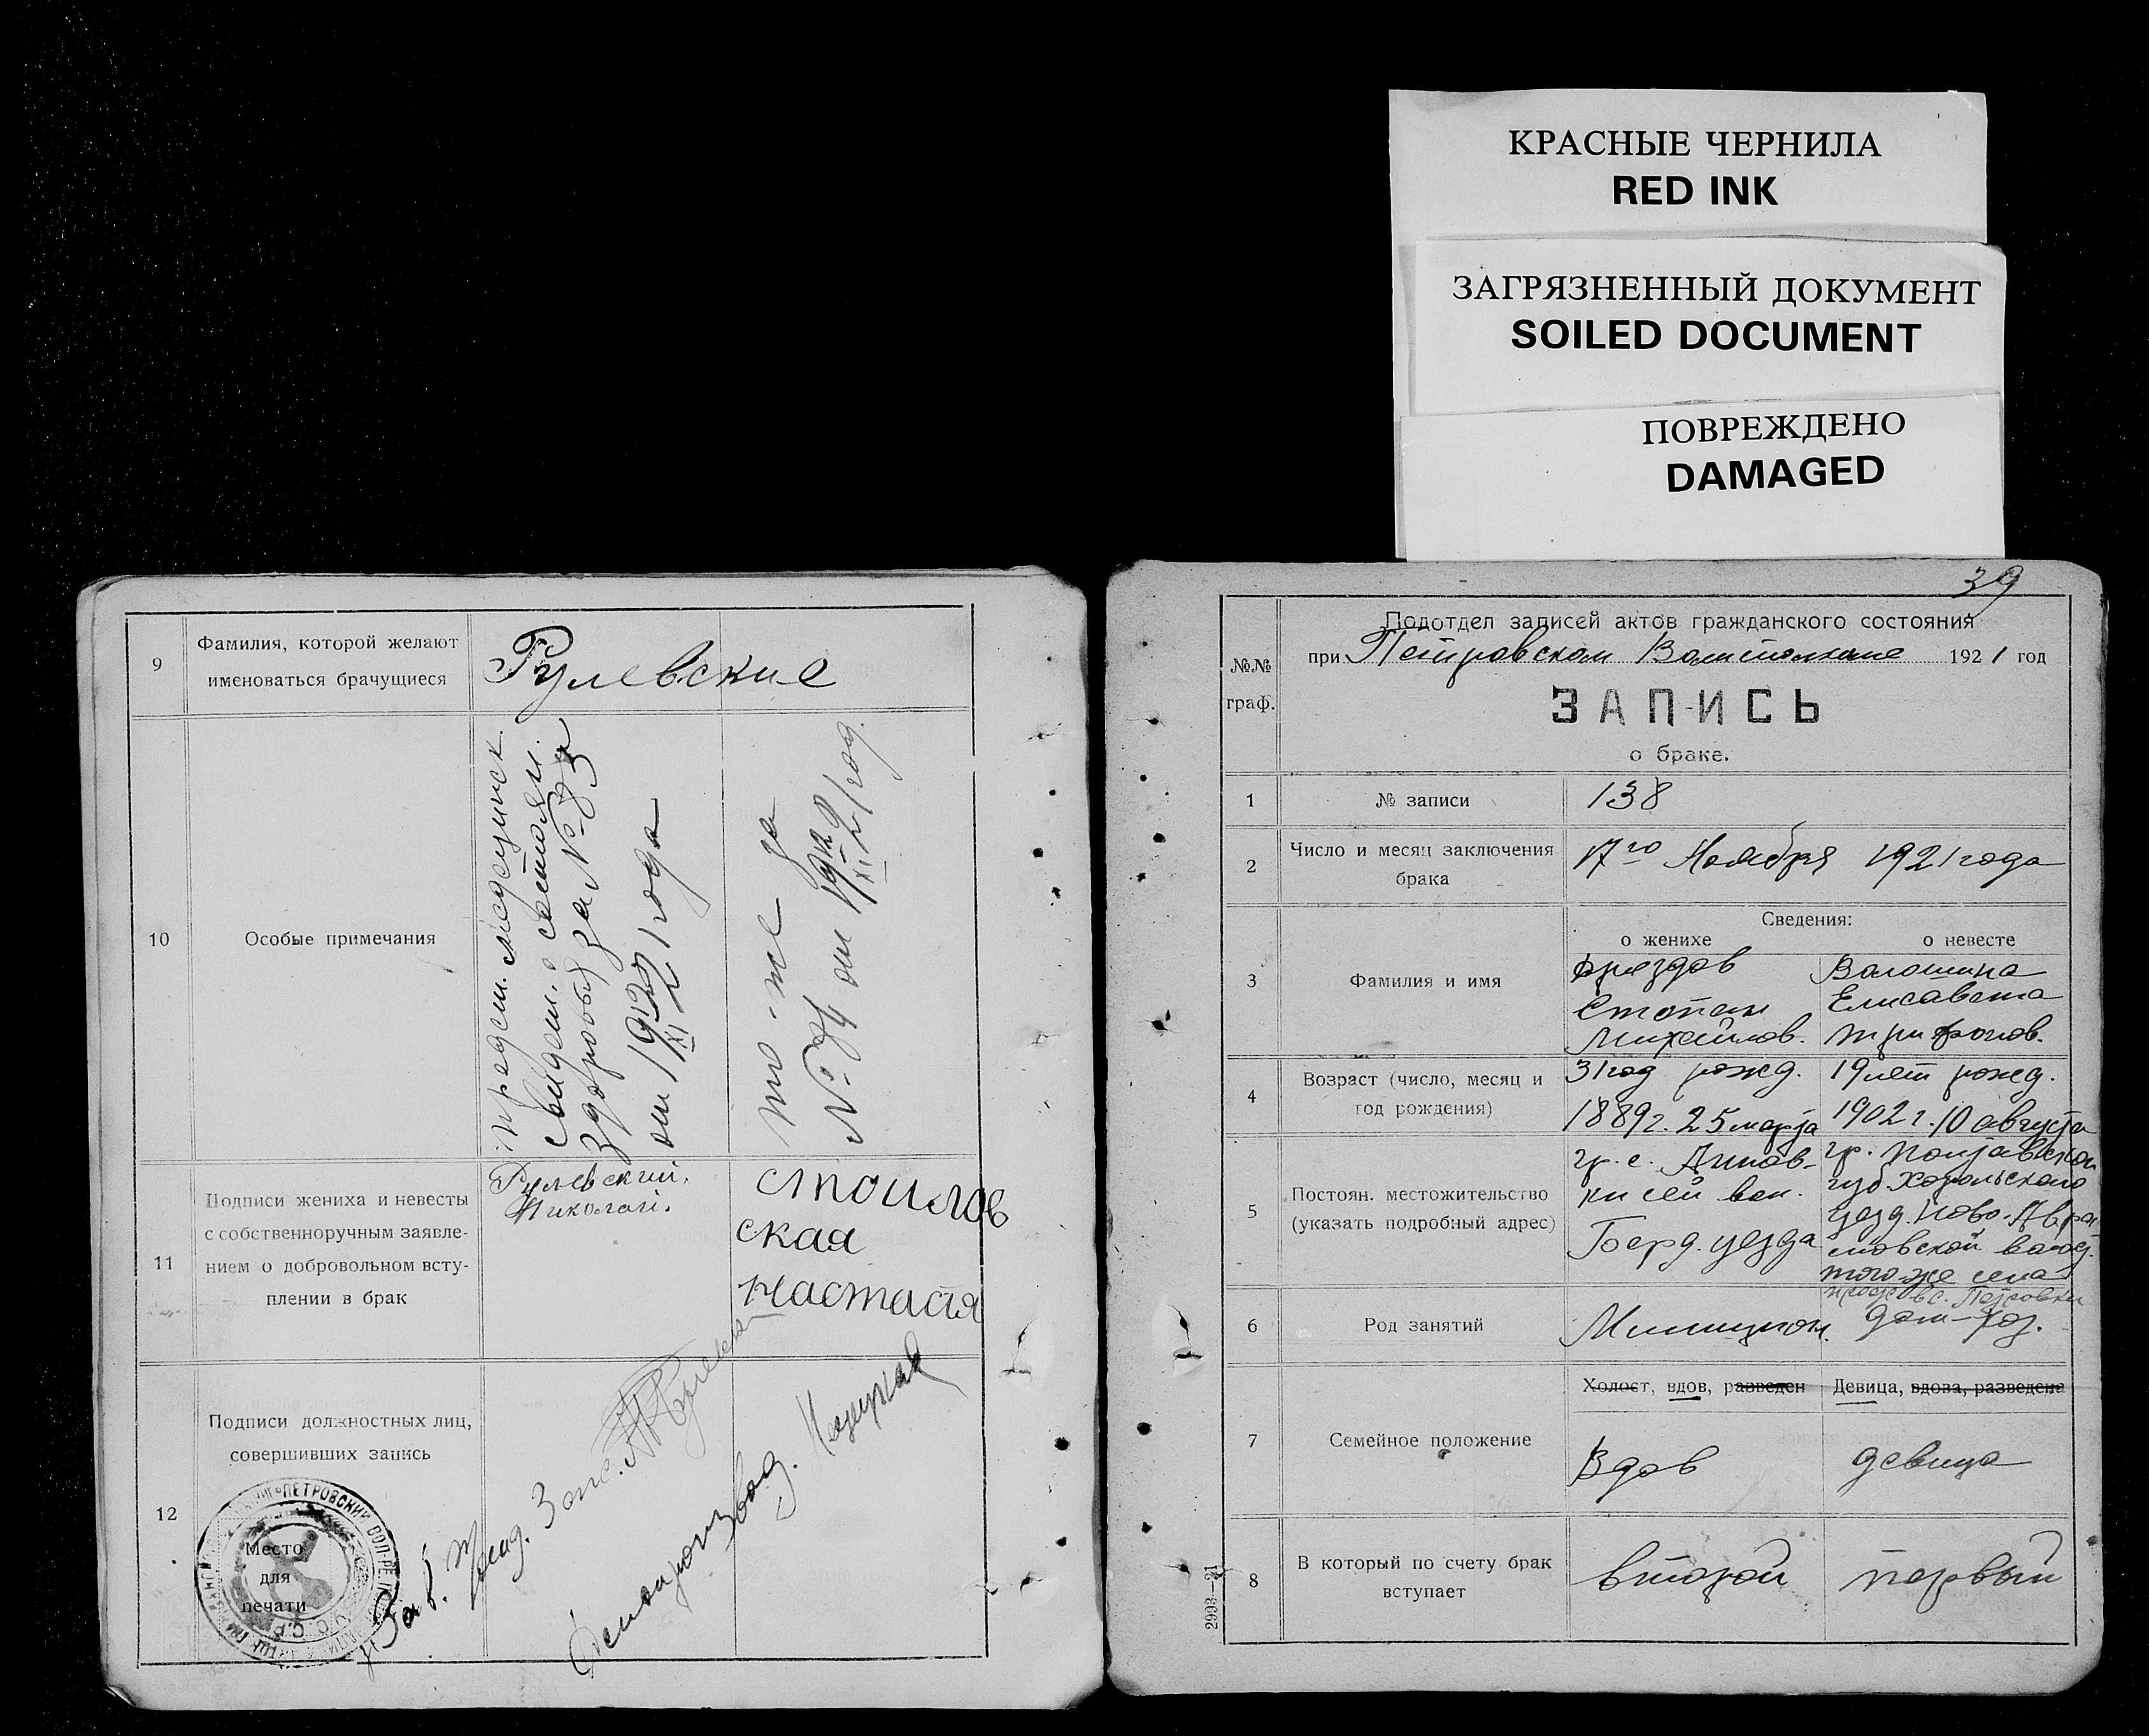 КРАСНЫЕ ЧЕРНИЛА
RED INK
ЗАГРЯЗНЕННЫЙ ДОКУМЕНТ
SOILED DOCUMENT
ПОВРЕЖДЕНО
DAMAGED
9
Фамилия, которой желают
именоваться брачущиеся
Рулевские
10
Особые примечания
предст. медицинск.
свидет. о состоян.
здоровья за № 83
от 19 17/XI 21 года
то-же за
№ 84 от 19 17/XI 21 год.
11
Подписи жениха и невесты
с собственноручным заявле-
нием о добровольном всту-
плении в брак
Рулевский
Николай.
стоилов
ская
Настасия
12
Подписи должностных лиц,
совершивших запись
Место
для
печати
Зав.
Делопроизвод.
39
Подотдел записей актов гражданского состояния
при Петровском Волисполкоме 1921 год
№№
граф.
ЗАПИСЬ
о браке.
1
№ записи
138
2
Число и месяц заключения
брака
17го Ноября 1921 года
Сведения:
о женихе
о невесте
3
Фамилия и имя
Степан
Михайлов.
Волошина
Елисавета
Трифонов.
4
Возраст (число, месяц и
год рождения)
31 год рожд.
1889 г. 25 марта
19 лет рожд.
1902 г. 10 августа
5
Постоян. местожительство
(указать подробный адрес)
гр. с.
сей вол.
Берд. уезда
гр. Полтавской
губ. Хорольского
уезд. Ново-Авра
мовской волос.
того-же села
прож. в с. Петровки
6
Род занятий
Милицион.
дом-хоз.
7
Семейное положение
Холост, вдов, разведен
Девица, вдова, разведена
Вдов
девица
8
В который по счету брак
вступает
второй
первый
2903—21